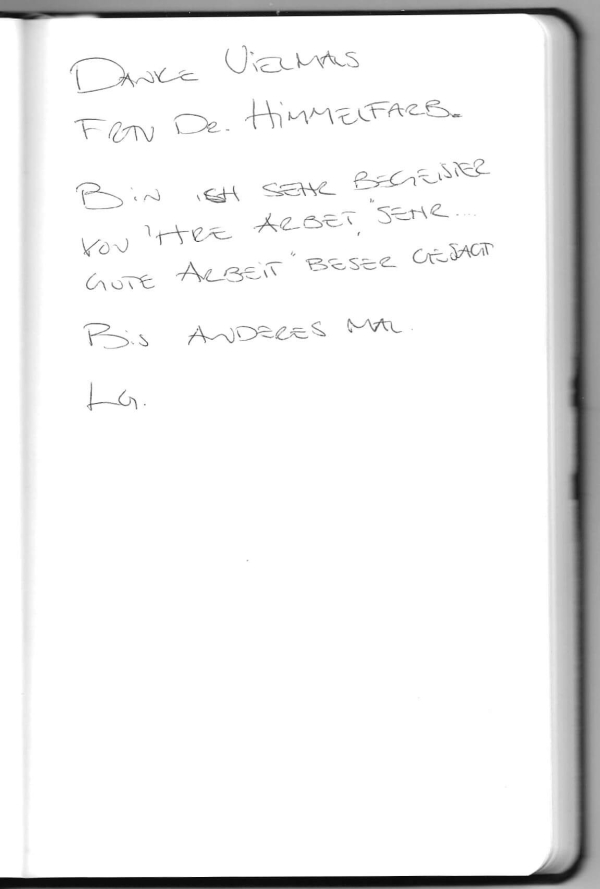 DANKE VIELMALS
FRAU DR. HIMMELFARB.
BIN ICH SEHR BEGEISTER
VOU IHRE ARBEIT, "SEHR...
GUTE ARBEIT" BESER GESAGT
BIS ANDERES MAL.
LG.